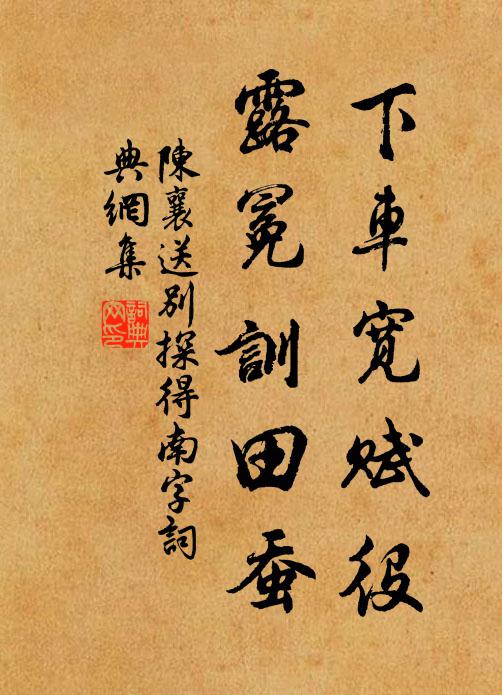 下車寬賦役
露冕訓田蚕
陳襄送別探得南字詞
典網集
詞典
网印